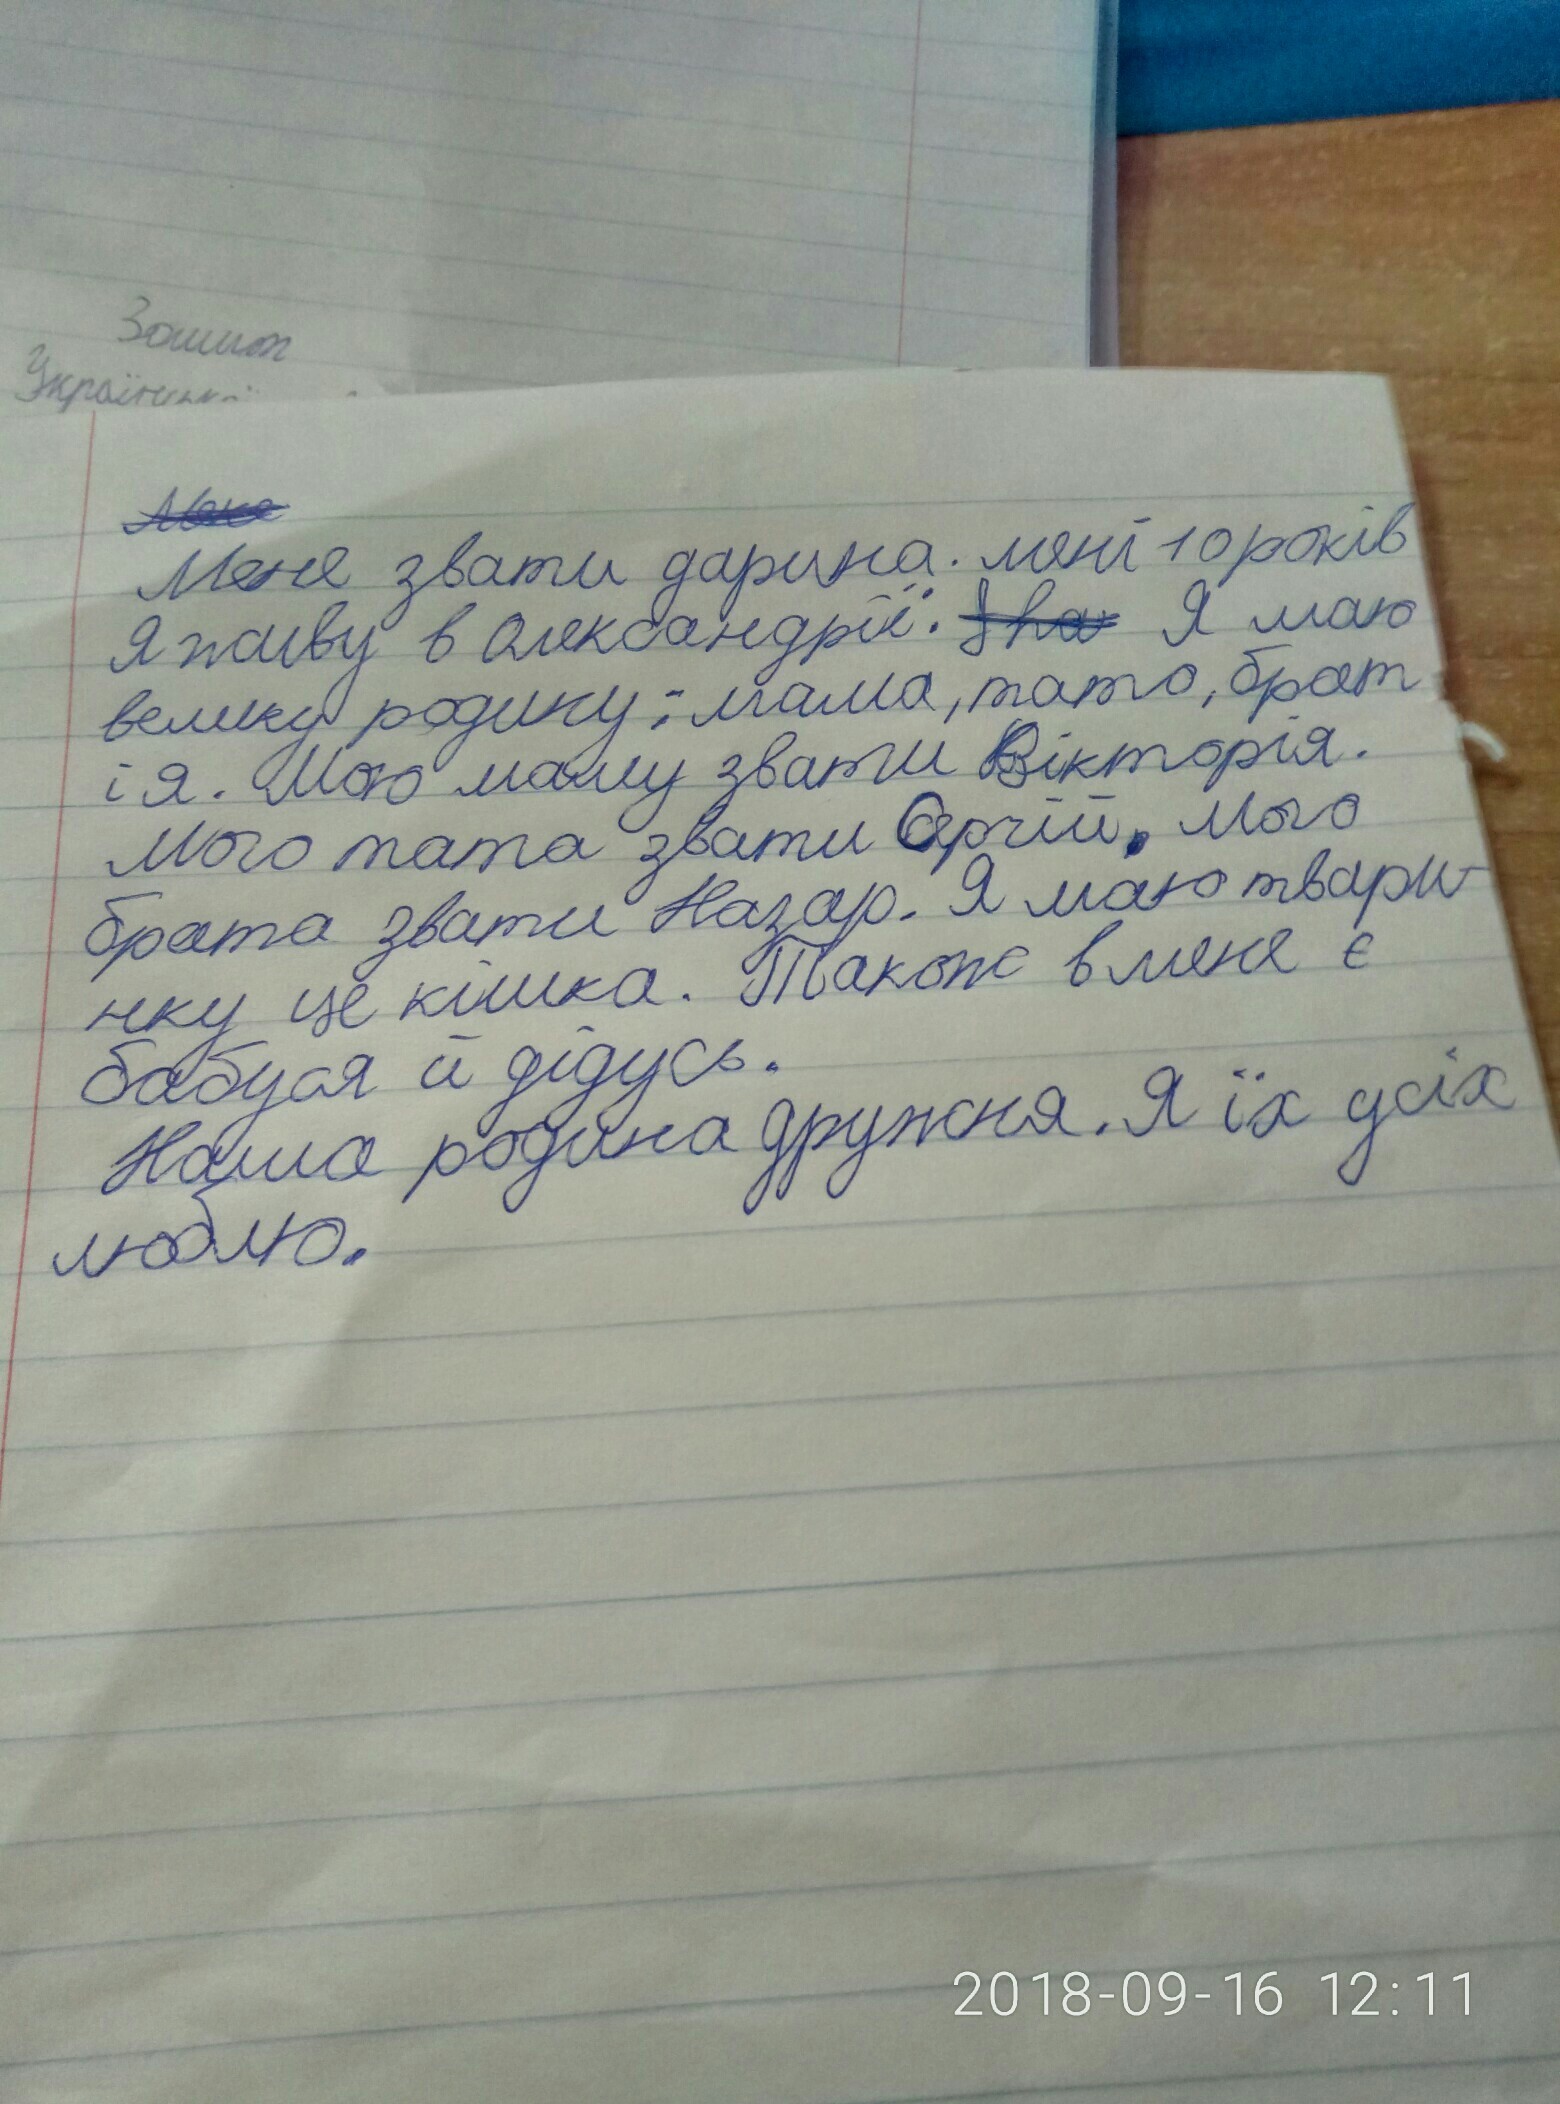 Зошит
Українськ
Мене звати дарина. мені 10 років
Я живу в Олександрії. Я маю
велику родину: мама, тато, брат
і я. Мою маму звати Вікторія.
Мого тата звати Мого
брата звати Назар. Я маю твари-
нку це кішка. Також в мене є
бабуся й дідусь.
Наша родина дружня. Я їх усіх
люблю.
2018-09-16 12:11